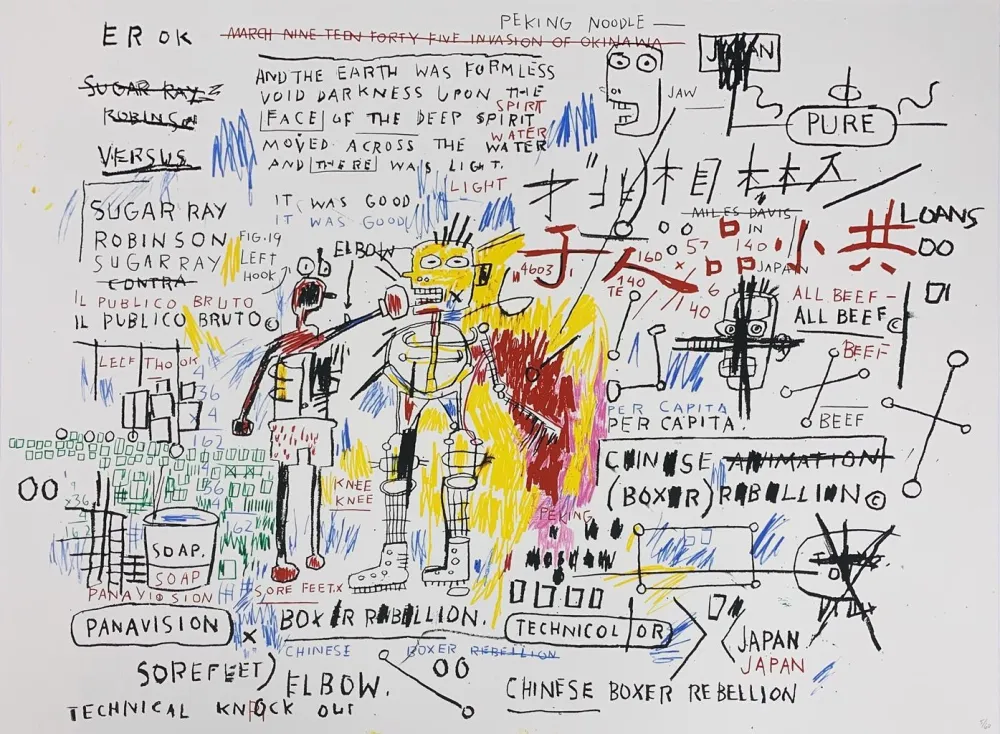 PEKING NOODLE
EROK
MARCH NINETEEN FORTY FIVE INVASION OF OKINAWA
JAPAN
SUGAR RAY
ROBINSON
VERSUS
AND THE EARTH WAS FORMLESS
VOID DARKNESS UPON THE
SPIRIT
FACE OF THE DEEP SPIRIT
WATER
MOVED ACROSS THE WATER
AND THERE WAS LIGHT.
LIGHT
IT WAS GOOD
IT WAS GOOD
JAW
PURE
MILES DAVIS
LOANS
SUGAR RAY
ROBINSON
SUGAR RAY
CONTRA
IL PUBLICO BRUTO
IL PUBLICO BRUTO©
FIG.19
LEFT
HOOK
ELBOW
"4603"
160
57
IN
140
JAPAN
140
TE
6
40
ALL BEEF—
ALL BEEF©
BEEF
BEEF
PER CAPITA
PER CAPITA.
CHINESE ANIMATION
(BOXER) REBELLION©
36
x 4
162
KNEE
KNEE
PEKING
MOSCOW
SOAP.
SOAP
PANAVISION
PANAVISION
SORE FEET.x
BOXER REBELLION.
CHINESE BOXER REBELLION
TECHNICOLOR
JAPAN
JAPAN
SOREFEET)
ELBOW.
CHINESE BOXER REBELLION
TECHNICAL KNOCK OUT